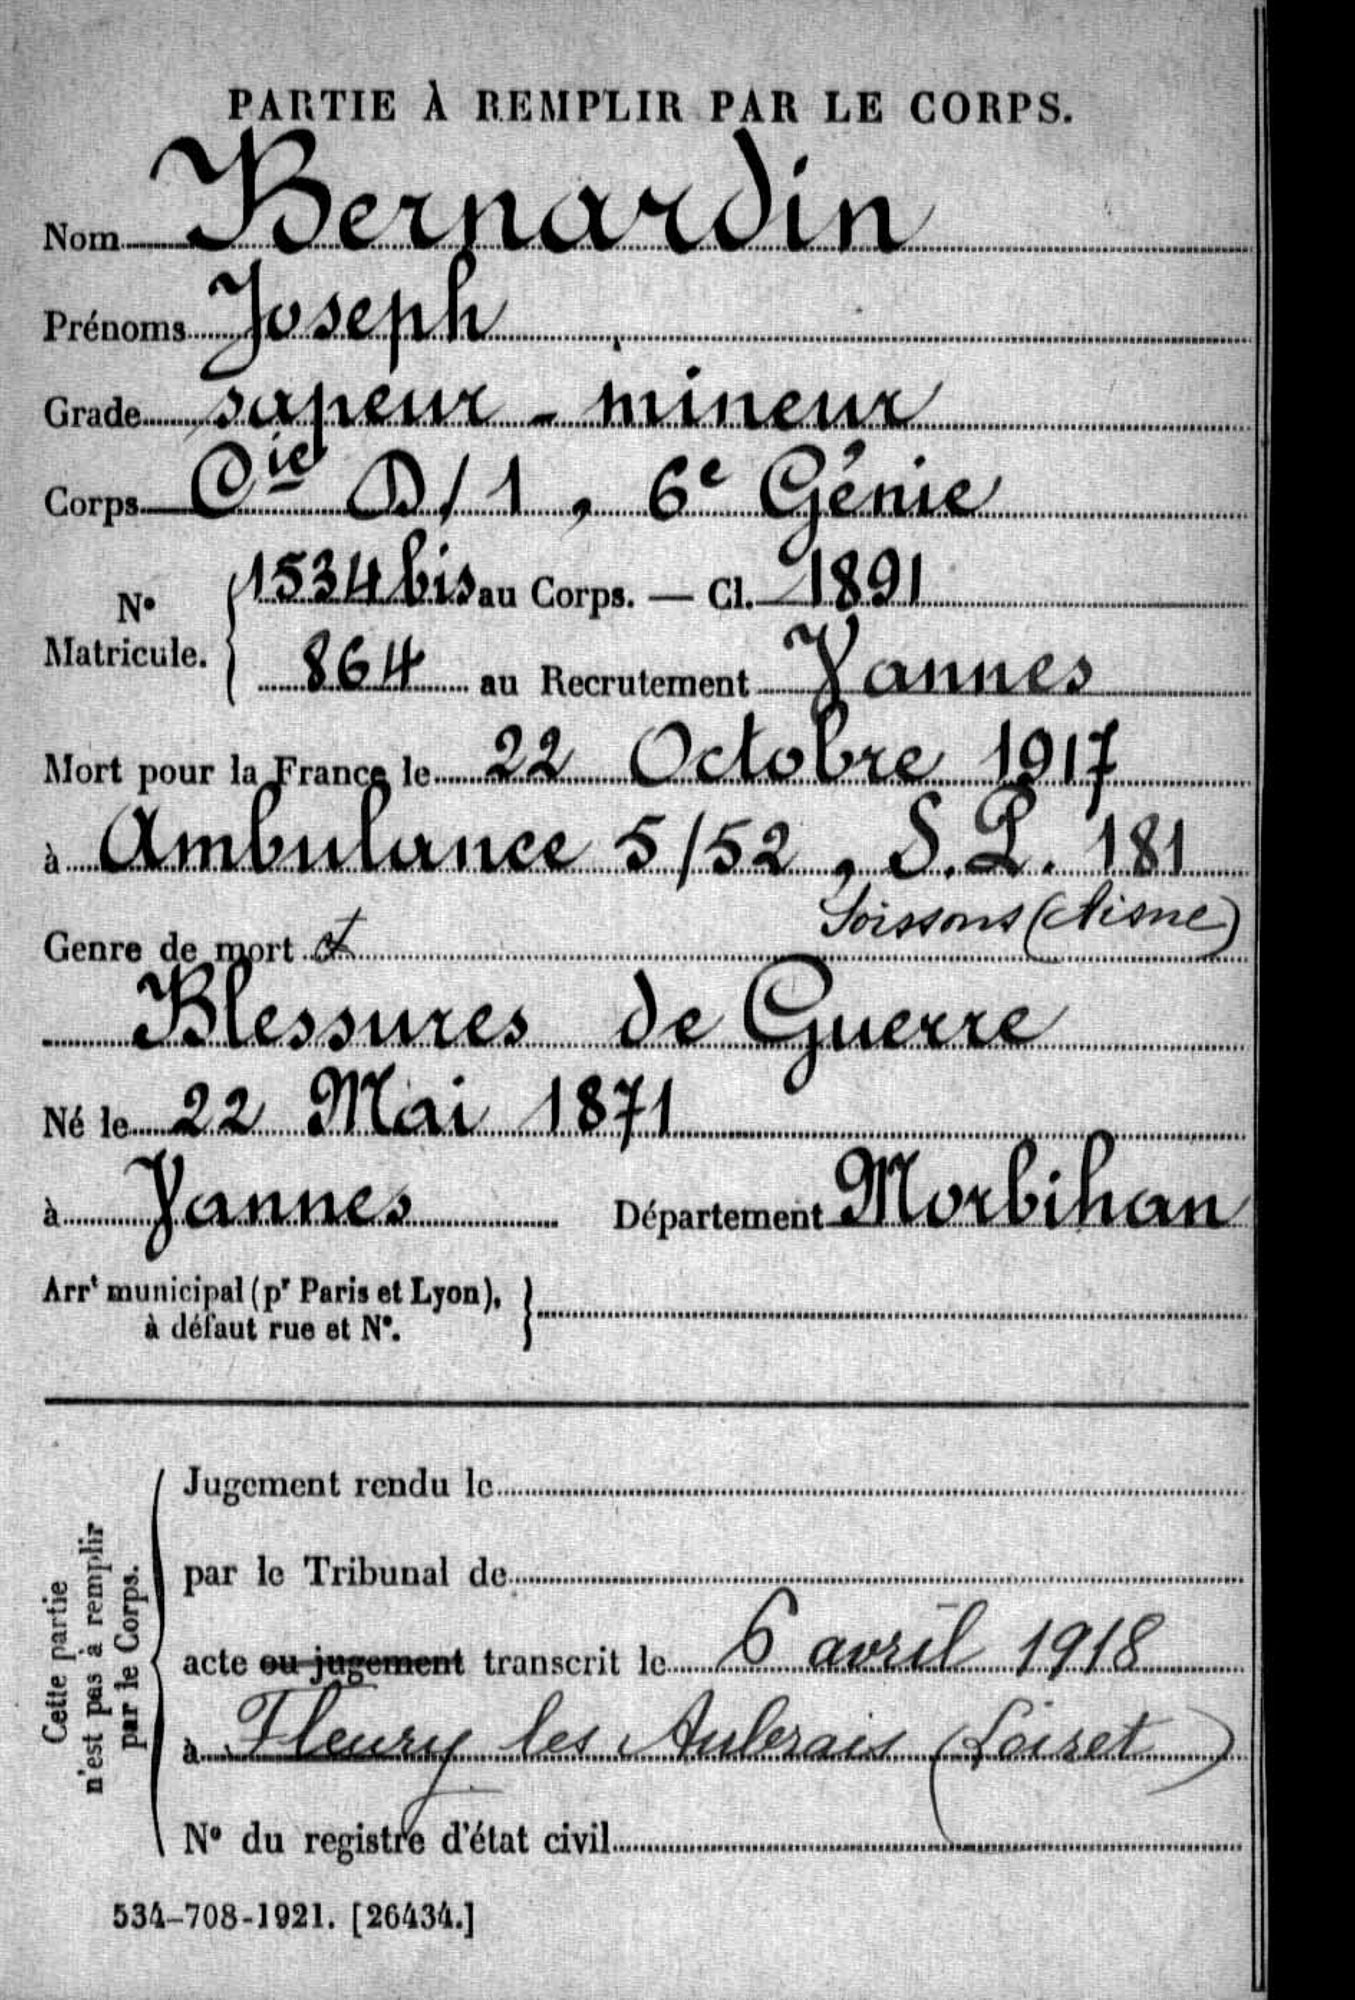 PARTIE À REMPLIR PAR LE CORPS.
Nom Bernardin
Prénoms Joseph
Grade sapeur - mineur
Corps Cie D/1, 6e Génie
N° Matricule. { 1534 bis au Corps. — Cl. 1891
864 au Recrutement Vannes
Mort pour la France le 22 Octobre 1917
à Ambulance 5/52, S.P. 181
Soissons (Aisne)
Genre de mort
Blessures de Guerre
Né le 22 Mai 1871
à Vannes Département Morbihan
Arrt municipal (pr Paris et Lyon),
à défaut rue et N°.
Cette partie
n'est pas à remplir
par le Corps.
Jugement rendu le
par le Tribunal de
acte ou jugement transcrit le 6 avril 1918
à Fleury les Aubrais (Loiret)
N° du registre d'état civil
534-708-1921. [26434.]